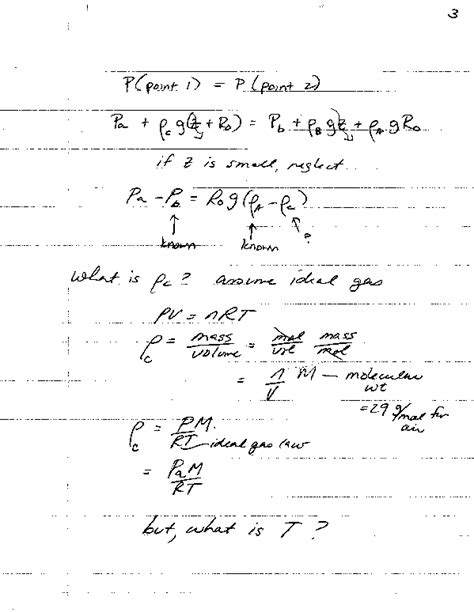 3
P(point 1) = P(point 2)
Pa + ρc g(z + R₀) = Pb + ρB g z + ρA g R₀
if z is small, neglect
Pa - Pb = R₀ g (ρA - ρc)
↑ ↑ ↑ ?
known known
what is ρc? assume ideal gas
PV = nRT
ρc = mass/volume = mol/vol mass/mol
= n/V M — molecular wt
= 29 g/mol for air
ρc = PM/RT — ideal gas law
= PaM/RT
but, what is T?